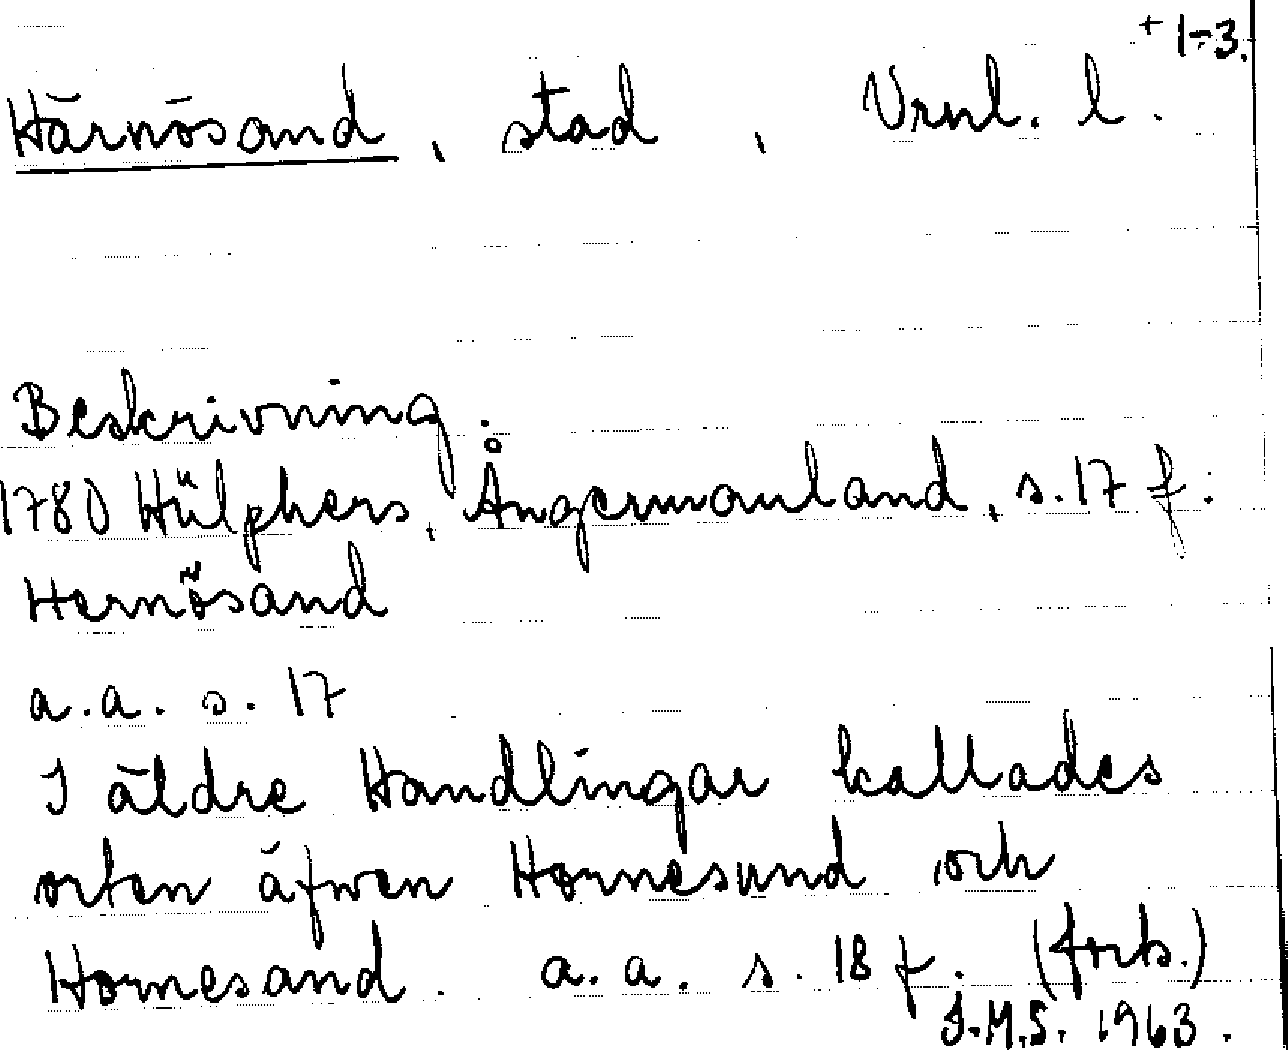 + 1-3.
Härnösand, stad, Vrnl. l.
Beskrivning.
1780 Hülphers, Ångermanland, s. 17 f:
Hernösand
a.a. s. 17
I äldre Handlingar kallades
orten äfwen Hornesund och
Hornesand. a.a. s. 18 f. (forts.)
J.M.S. 1963.